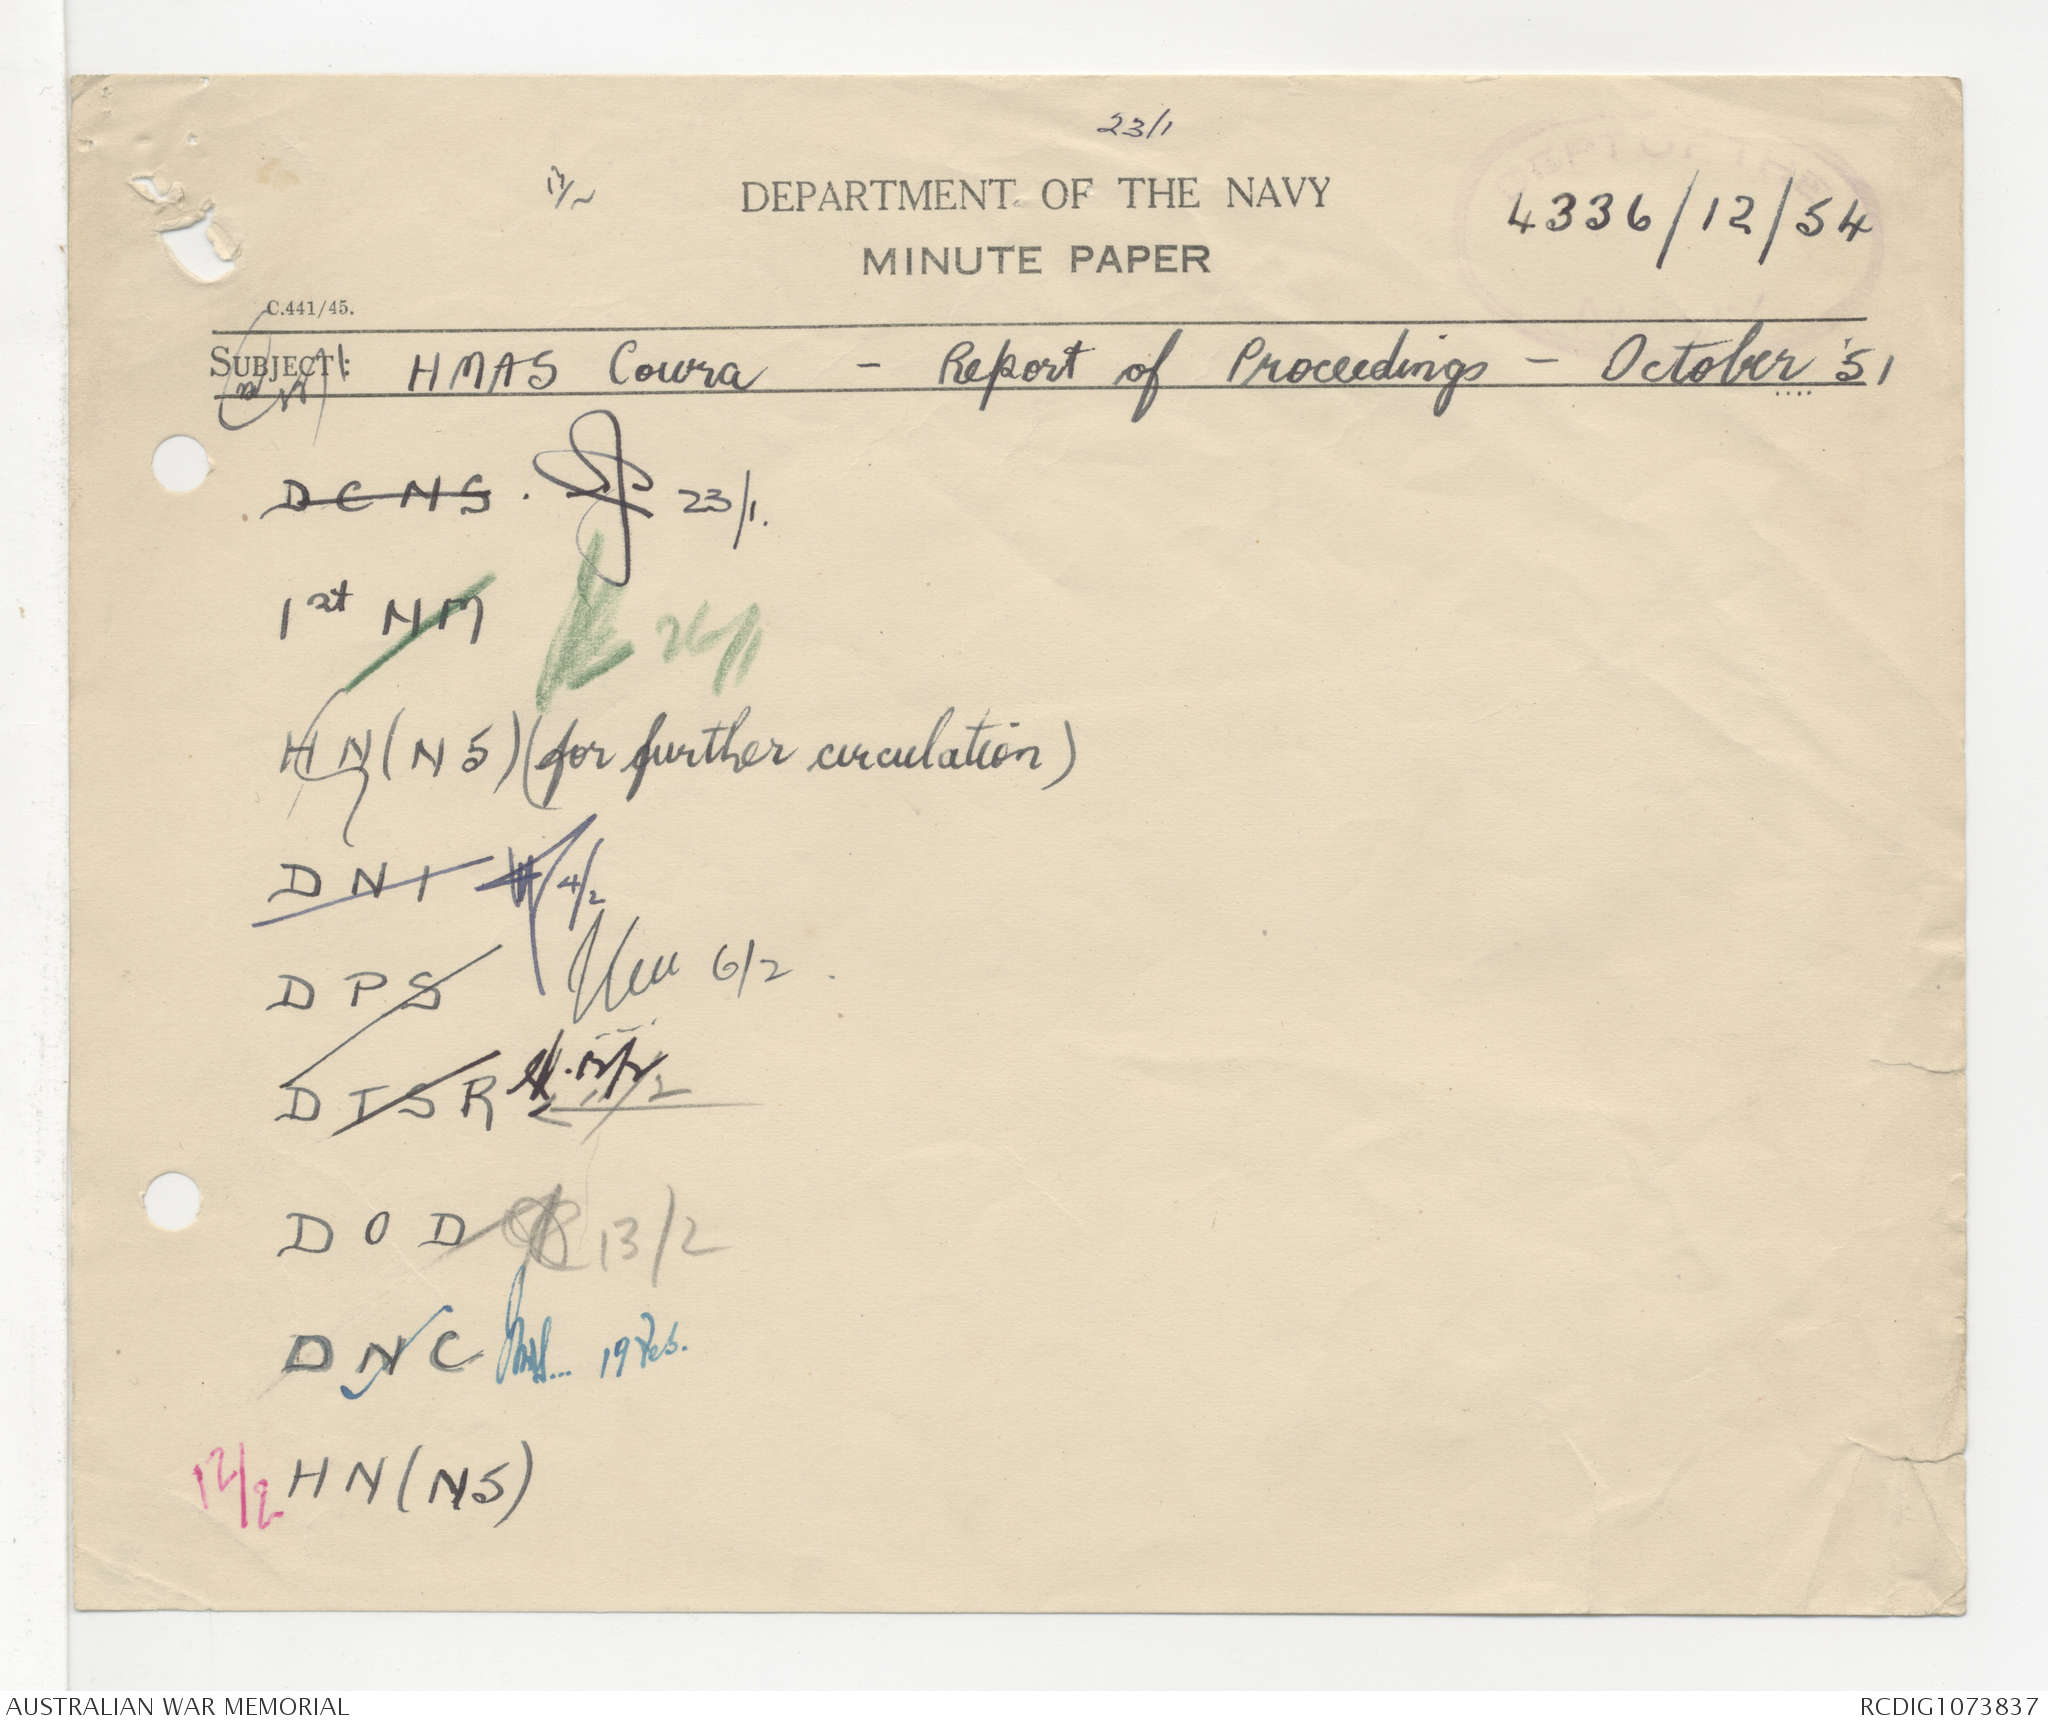 23/1
DEPARTMENT OF THE NAVY
4336/12/54
MINUTE PAPER
C.441/45.
SUBJECT: HMAS Cowra - Report of Proceedings - October '51
DCNS. 23/1.
1st NM 26/1
HN(NS) (for further circulation)
DNI 4/2
DPS 6/2
DTSR 12/2
DOD 13/2
DNC 19 Feb.
12/2 HN(NS)
AUSTRALIAN WAR MEMORIAL
RCDIG1073837